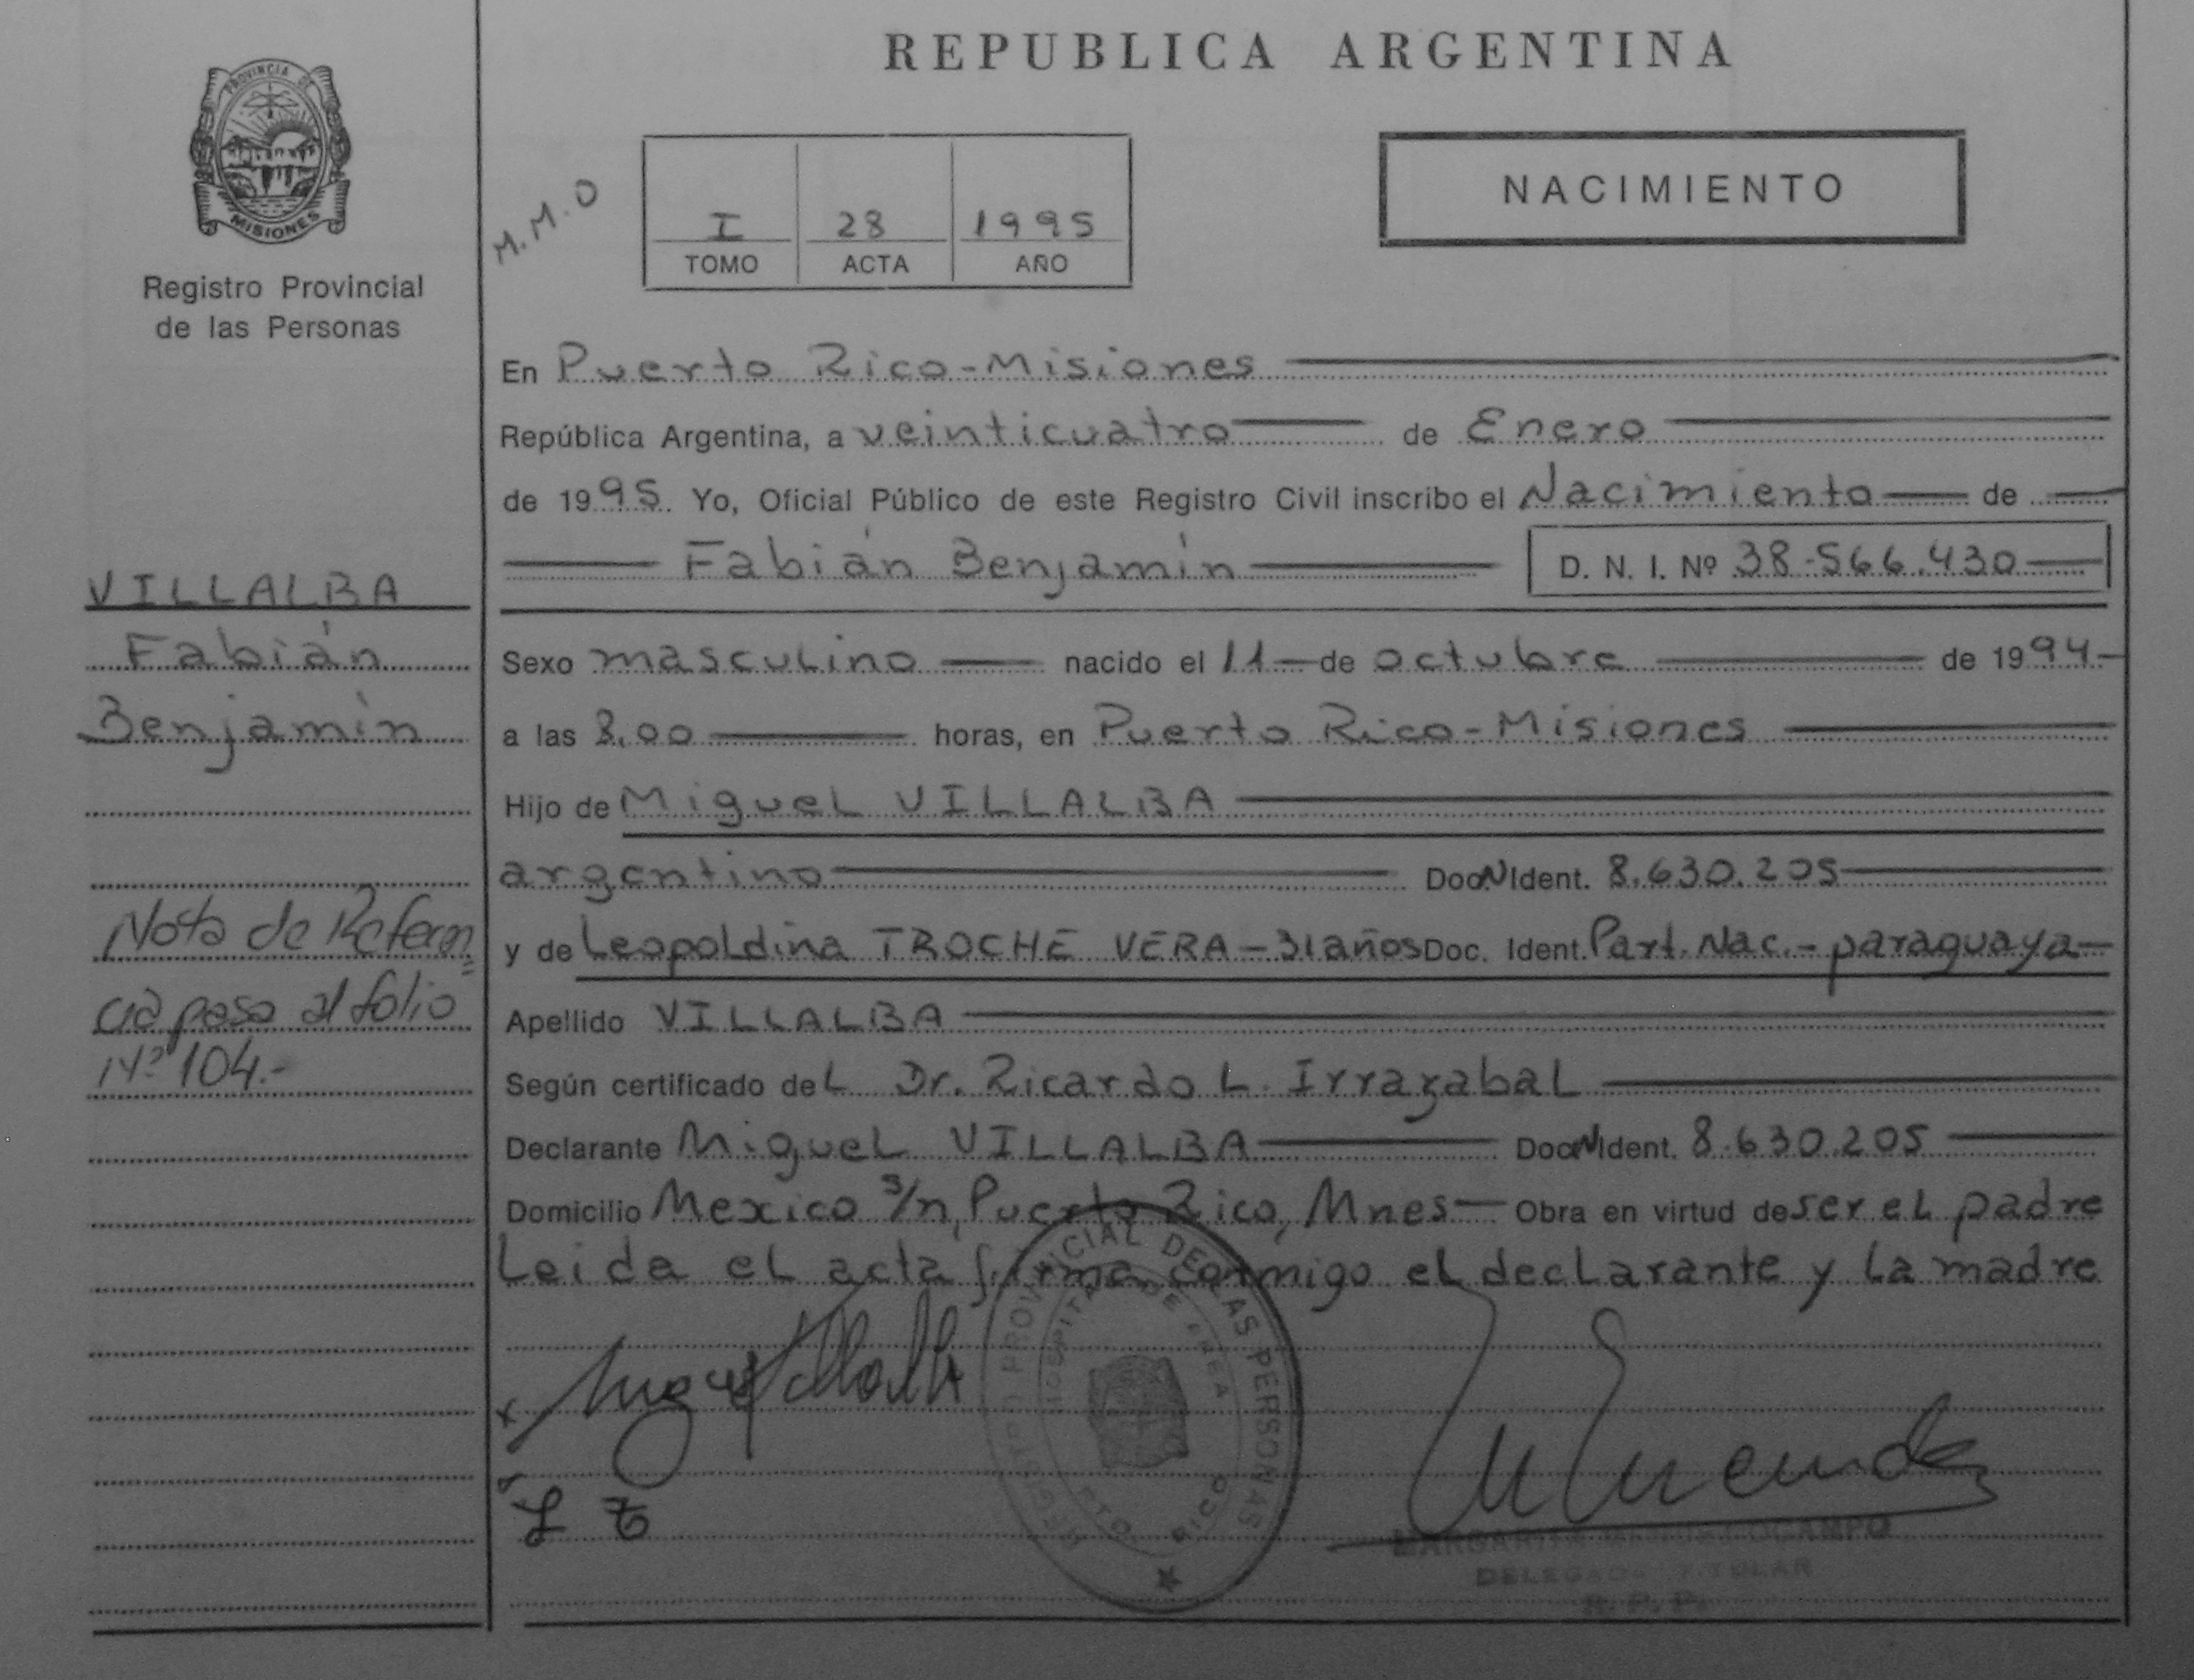 REPUBLICA ARGENTINA
PROVINCIA DE
MISIONES
Registro Provincial
de las Personas
M.M.O
I 28 1995
TOMO ACTA AÑO
NACIMIENTO
En Puerto Rico-Misiones
República Argentina, a veinticuatro de Enero
de 1995. Yo, Oficial Público de este Registro Civil inscribo el Nacimiento de
Fabián Benjamín D. N. I. Nº 38.566.430
VILLALBA
Fabián
Benjamín
Sexo masculino nacido el 11 de octubre de 1994
a las 8,00 horas, en Puerto Rico-Misiones
Hijo de Miguel VILLALBA
argentino Doc N Ident. 8.630.205
y de Leopoldina TROCHE VERA - 31 años Doc. Ident. Part. Nac. - paraguaya
Apellido VILLALBA
Según certificado del Dr. Ricardo L. Irrazabal
Declarante Miguel VILLALBA Doc N Ident. 8.630.205
Domicilio Mexico s/n, Puerto Rico, Mnes Obra en virtud de ser el padre
Leida el acta firma conmigo el declarante y la madre
Nota de Referen=
cia pasa al folio
Nº 104.-
PROVINCIAL DE LAS PERSONAS
HOSPITAL DE AREA
PTO RICO
L T
DELEGADA TITULAR
R. P. P.